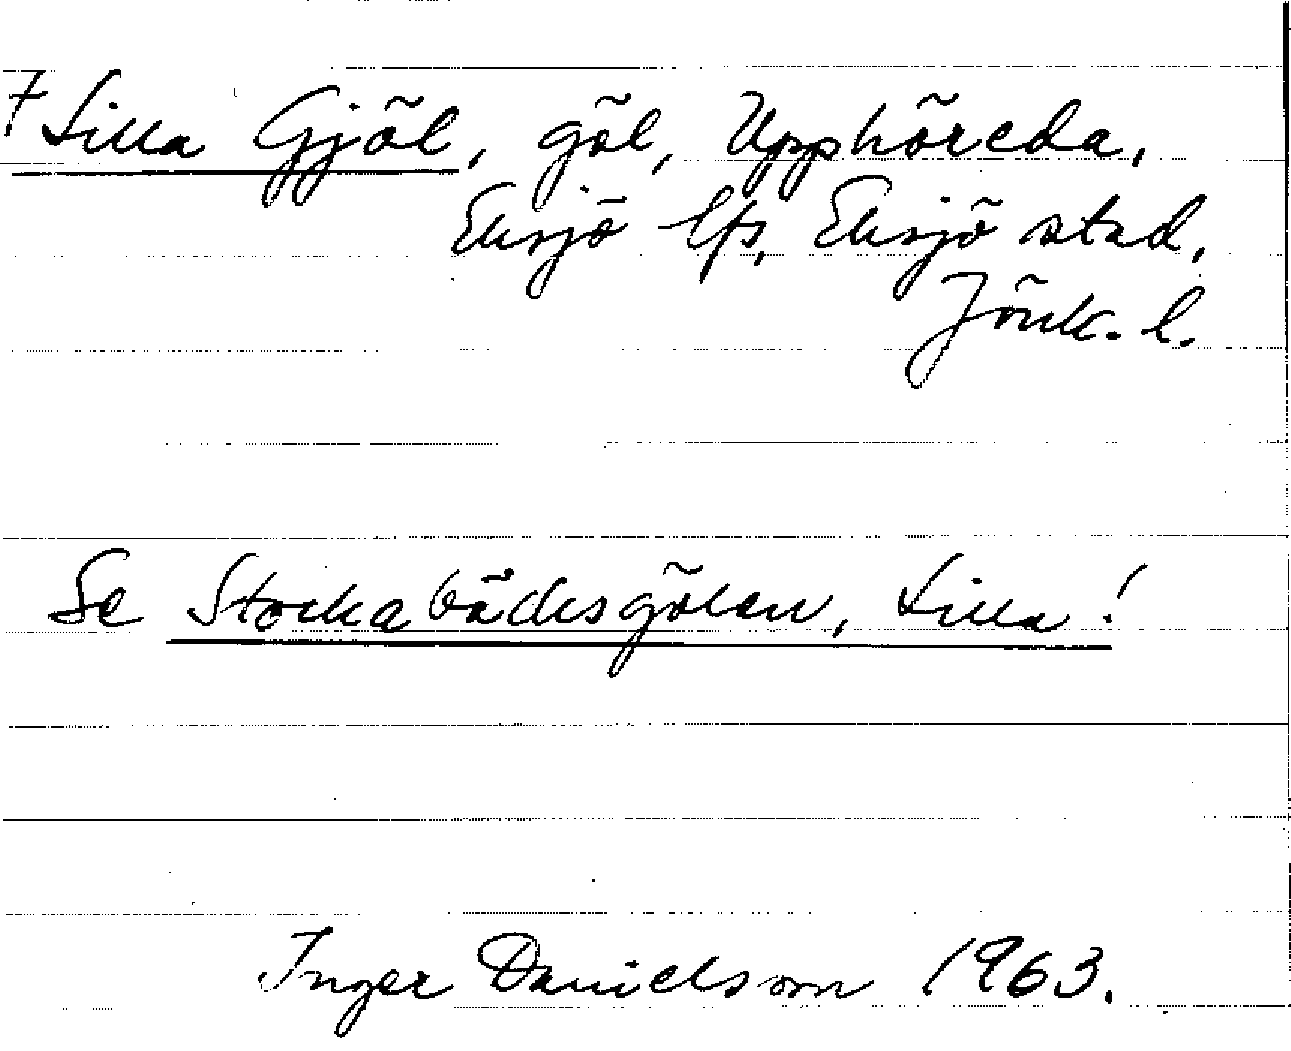 † Lilla Gjöl, göl, Upphöreda,
Eksjö lfs, Eksjö stad,
Jönk. l.
Se Stockabäcksgölen, Lilla!
Inger Danielsson 1963.